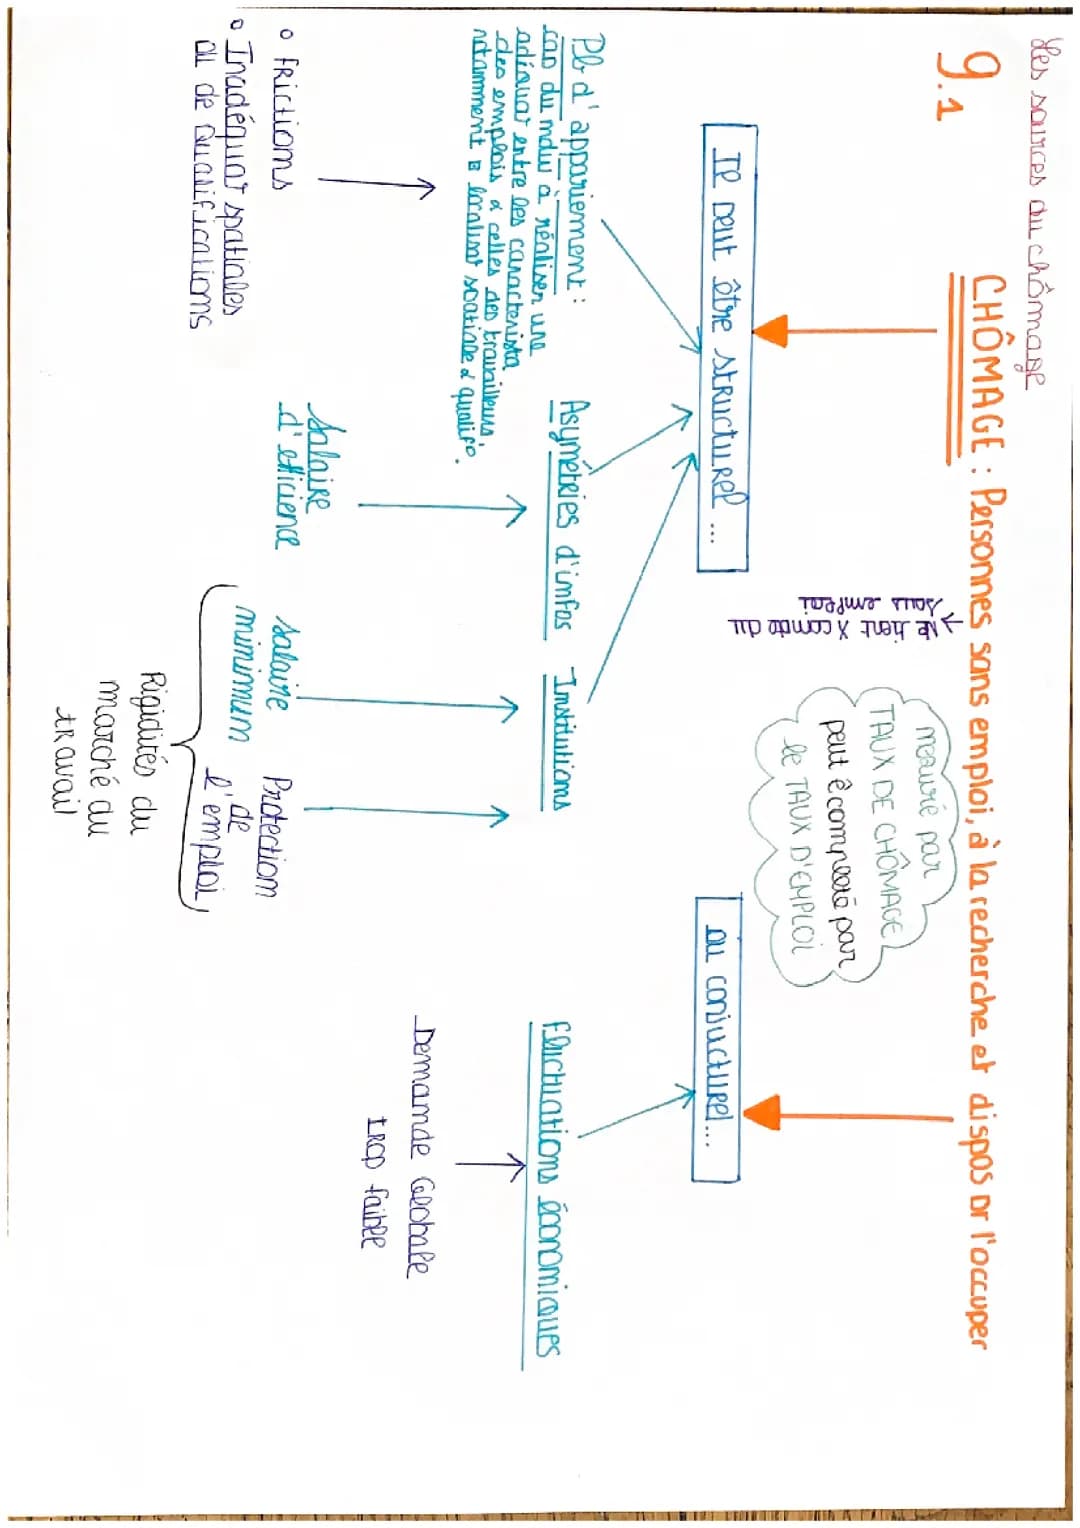 Les sources du chômage
9.1
CHÔMAGE : Personnes sans emploi, à la recherche et dispos pr l'occuper
↳ Ne tient X compte du
sous emploi
mesuré par
TAUX DE CHÔMAGE
peut ê complété par
le TAUX D'EMPLOI
Il peut être structurel ...
ou conjucturel...
Pb d'appariement :
cas du mdu à réaliser une
adéquat° entre les caractérista
des emplois & celles des travailleurs,
notamment localisat° spatiale & qualif°.
Asymétries d'infos
Institutions
Fluctuations économiques
° frictions
° Inadéquat° spatiales
ou de Qualifications
Salaire
d'efficience
Salaire
minimum
Protection
de
l'emploi
Rigidités du
marché du
travail
Demande Globale
trop faible